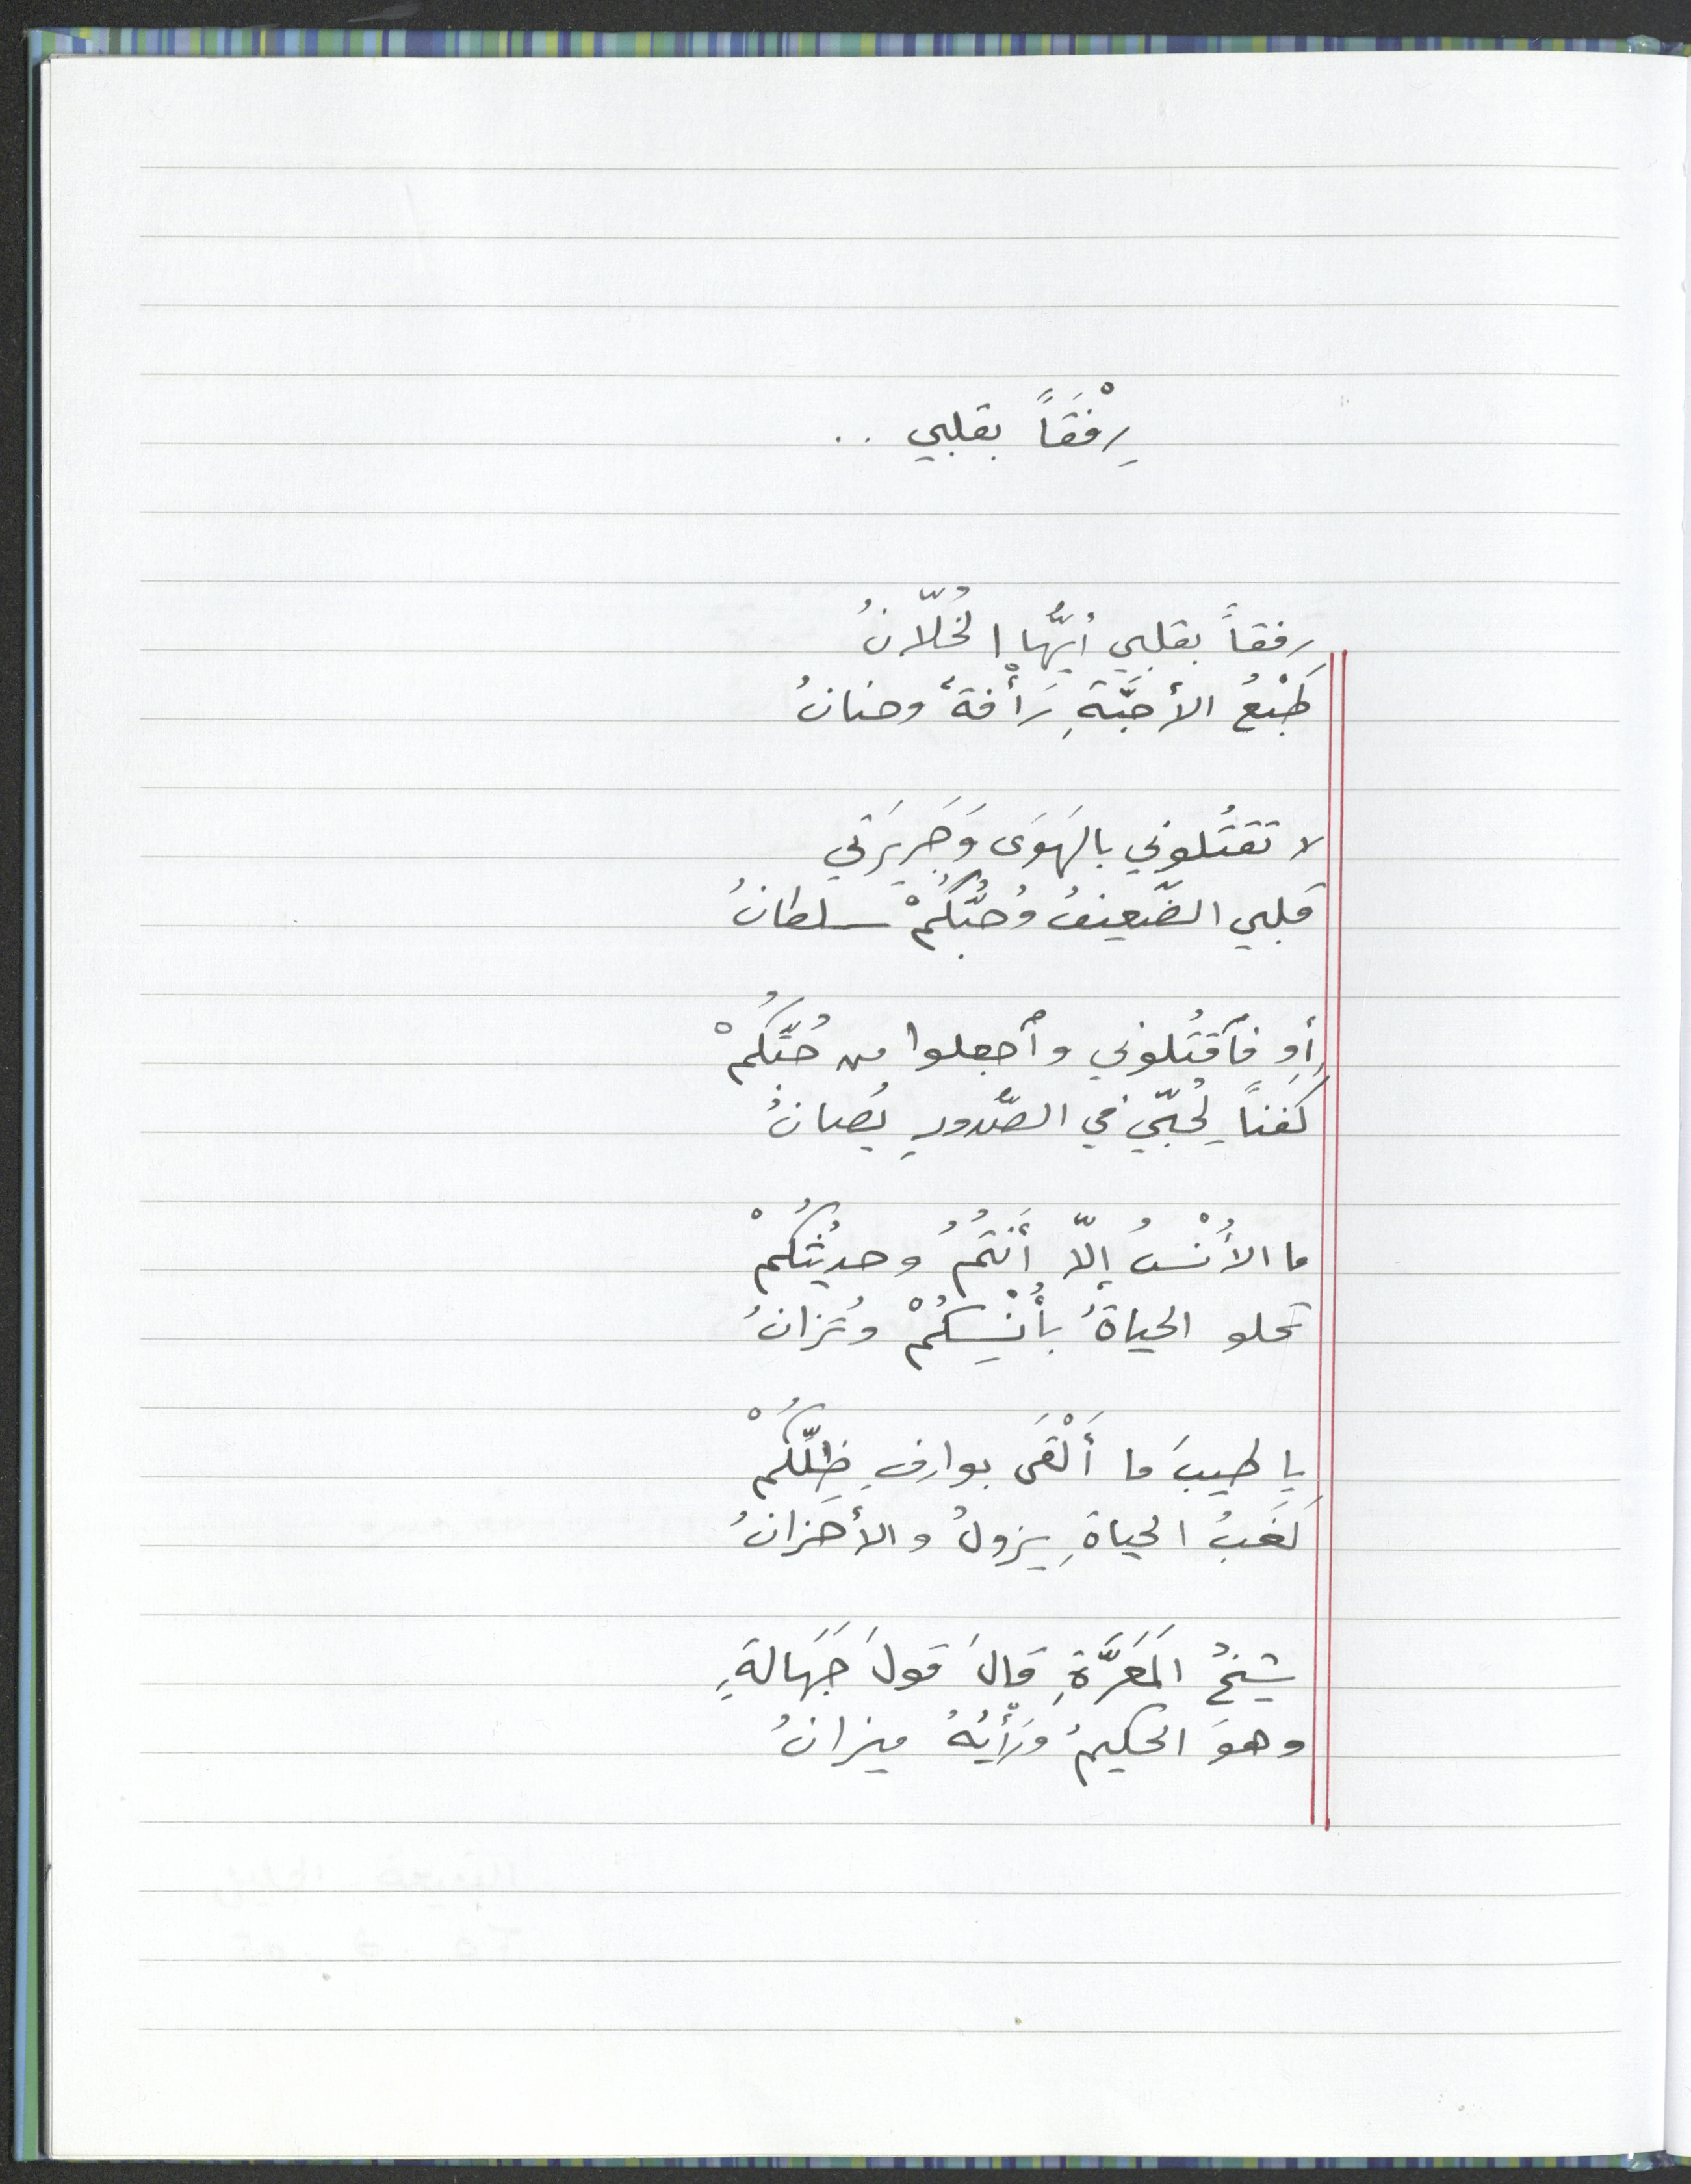 رِفْقَاً بقلبي ..
رفقاً بقلبي أيُّها الخُلّانُ
طَبْعُ الأحبَّةِ رَأْفةٌ وحنانُ
لا تقتُلوني بالهَوَى وَجَرِيرَتي
قلبي الضّعيفُ وُحبُّكُمْ سلطانُ
أوِ فٱقتُلوني وٱجعلوا من حُبِّكُمْ
كَفناً لِحُبّي في الصُّدورِ يُصانُ
ما الأُنْسُ إلّا أَنتُمُ وحديثُكُمْ
تحلو الحياةُ بأُنْسِكُمْ وتُزانُ
يا طيبَ ما أَلْقَى بوارِفِ ظِلِّكُمْ
تَعَبُ الحياةِ يزولُ والأحزانُ
شيخُ المَعَرَّةِ قالَ قولَ جَهَالةٍ
وهوَ الحكيمُ ورَأْيُهُ ميزانُ